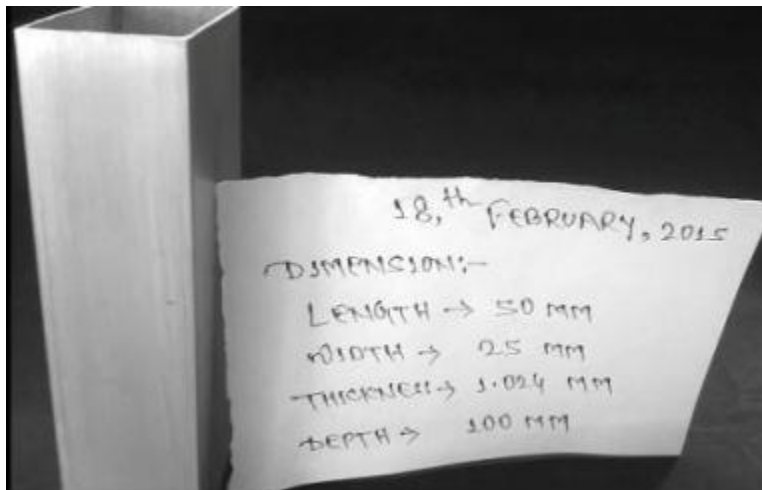 18,th FEBRUARY, 2015
DIMENSION:-
LENGTH → 50 MM
WIDTH → 25 MM
THICKNESS → 1.024 MM
DEPTH → 100 MM